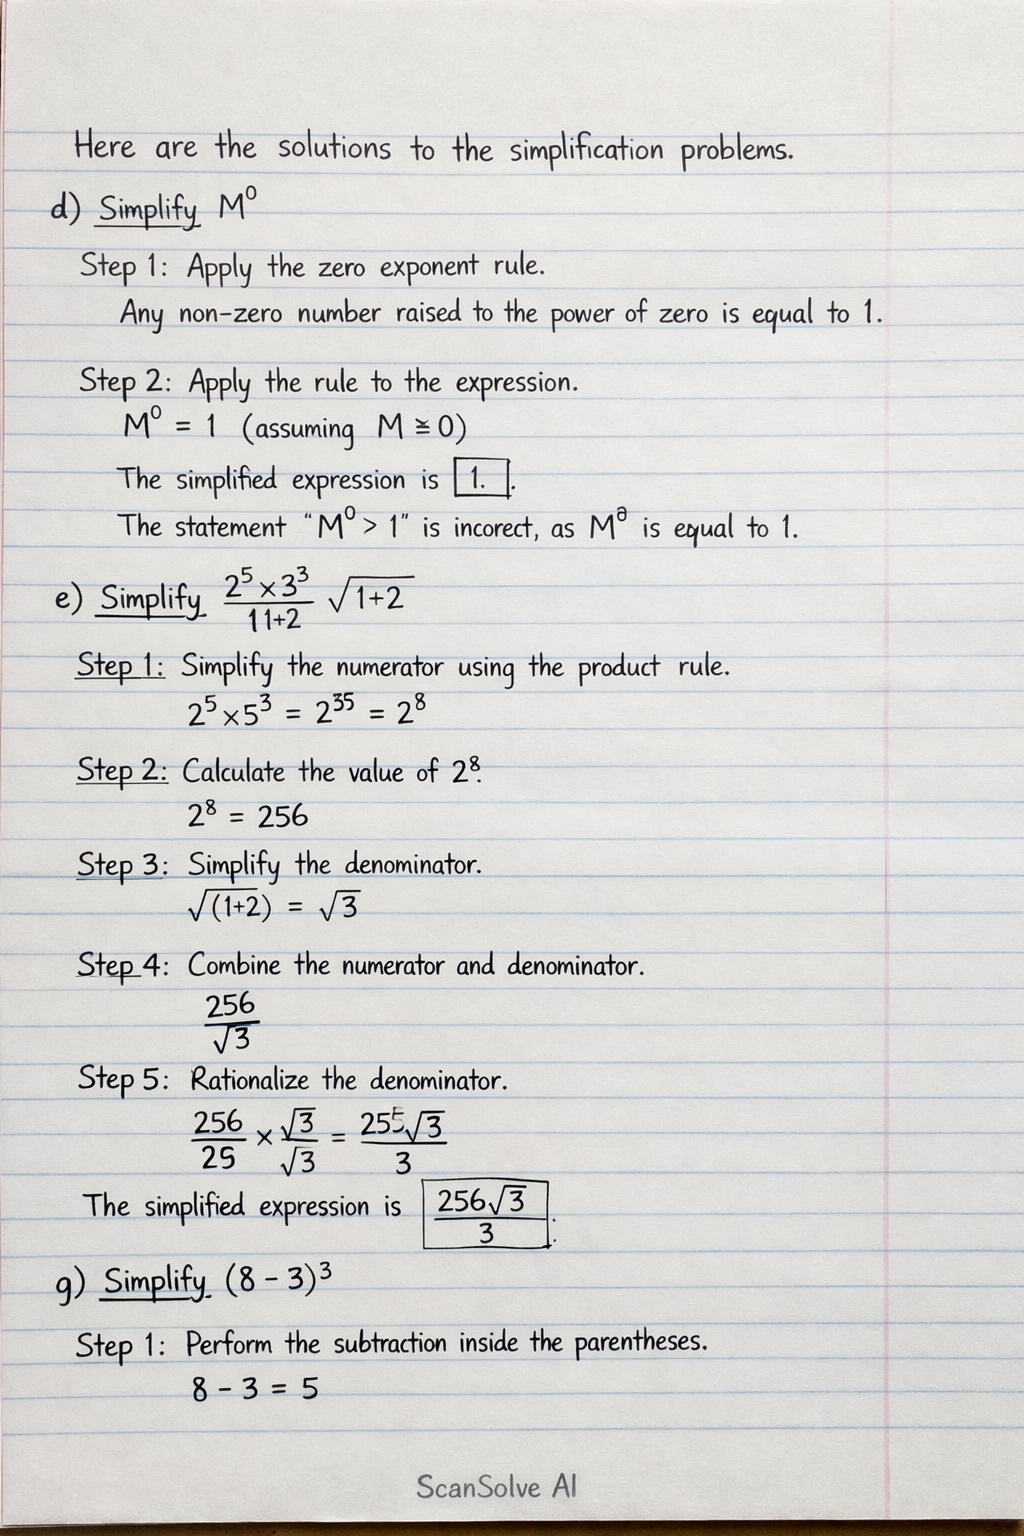 Here are the solutions to the simplification problems.
d) Simplify M⁰
Step 1: Apply the zero exponent rule.
Any non-zero number raised to the power of zero is equal to 1.
Step 2: Apply the rule to the expression.
M⁰ = 1 (assuming M ≚ 0)
The simplified expression is 1. .
The statement "M⁰ > 1" is incorect, as M⁰ is equal to 1.
e) Simplify (2⁵ × 3³)/(11+2) √(1+2)
Step 1: Simplify the numerator using the product rule.
2⁵ × 5³ = 2³⁵ = 2⁸
Step 2: Calculate the value of 2⁸.
2⁸ = 256
Step 3: Simplify the denominator.
√(1+2) = √3
Step 4: Combine the numerator and denominator.
256/√3
Step 5: Rationalize the denominator.
256/25 × √3/√3 = 255√3/3
The simplified expression is 256√3/3.
g) Simplify (8 - 3)³
Step 1: Perform the subtraction inside the parentheses.
8 - 3 = 5
ScanSolve AI